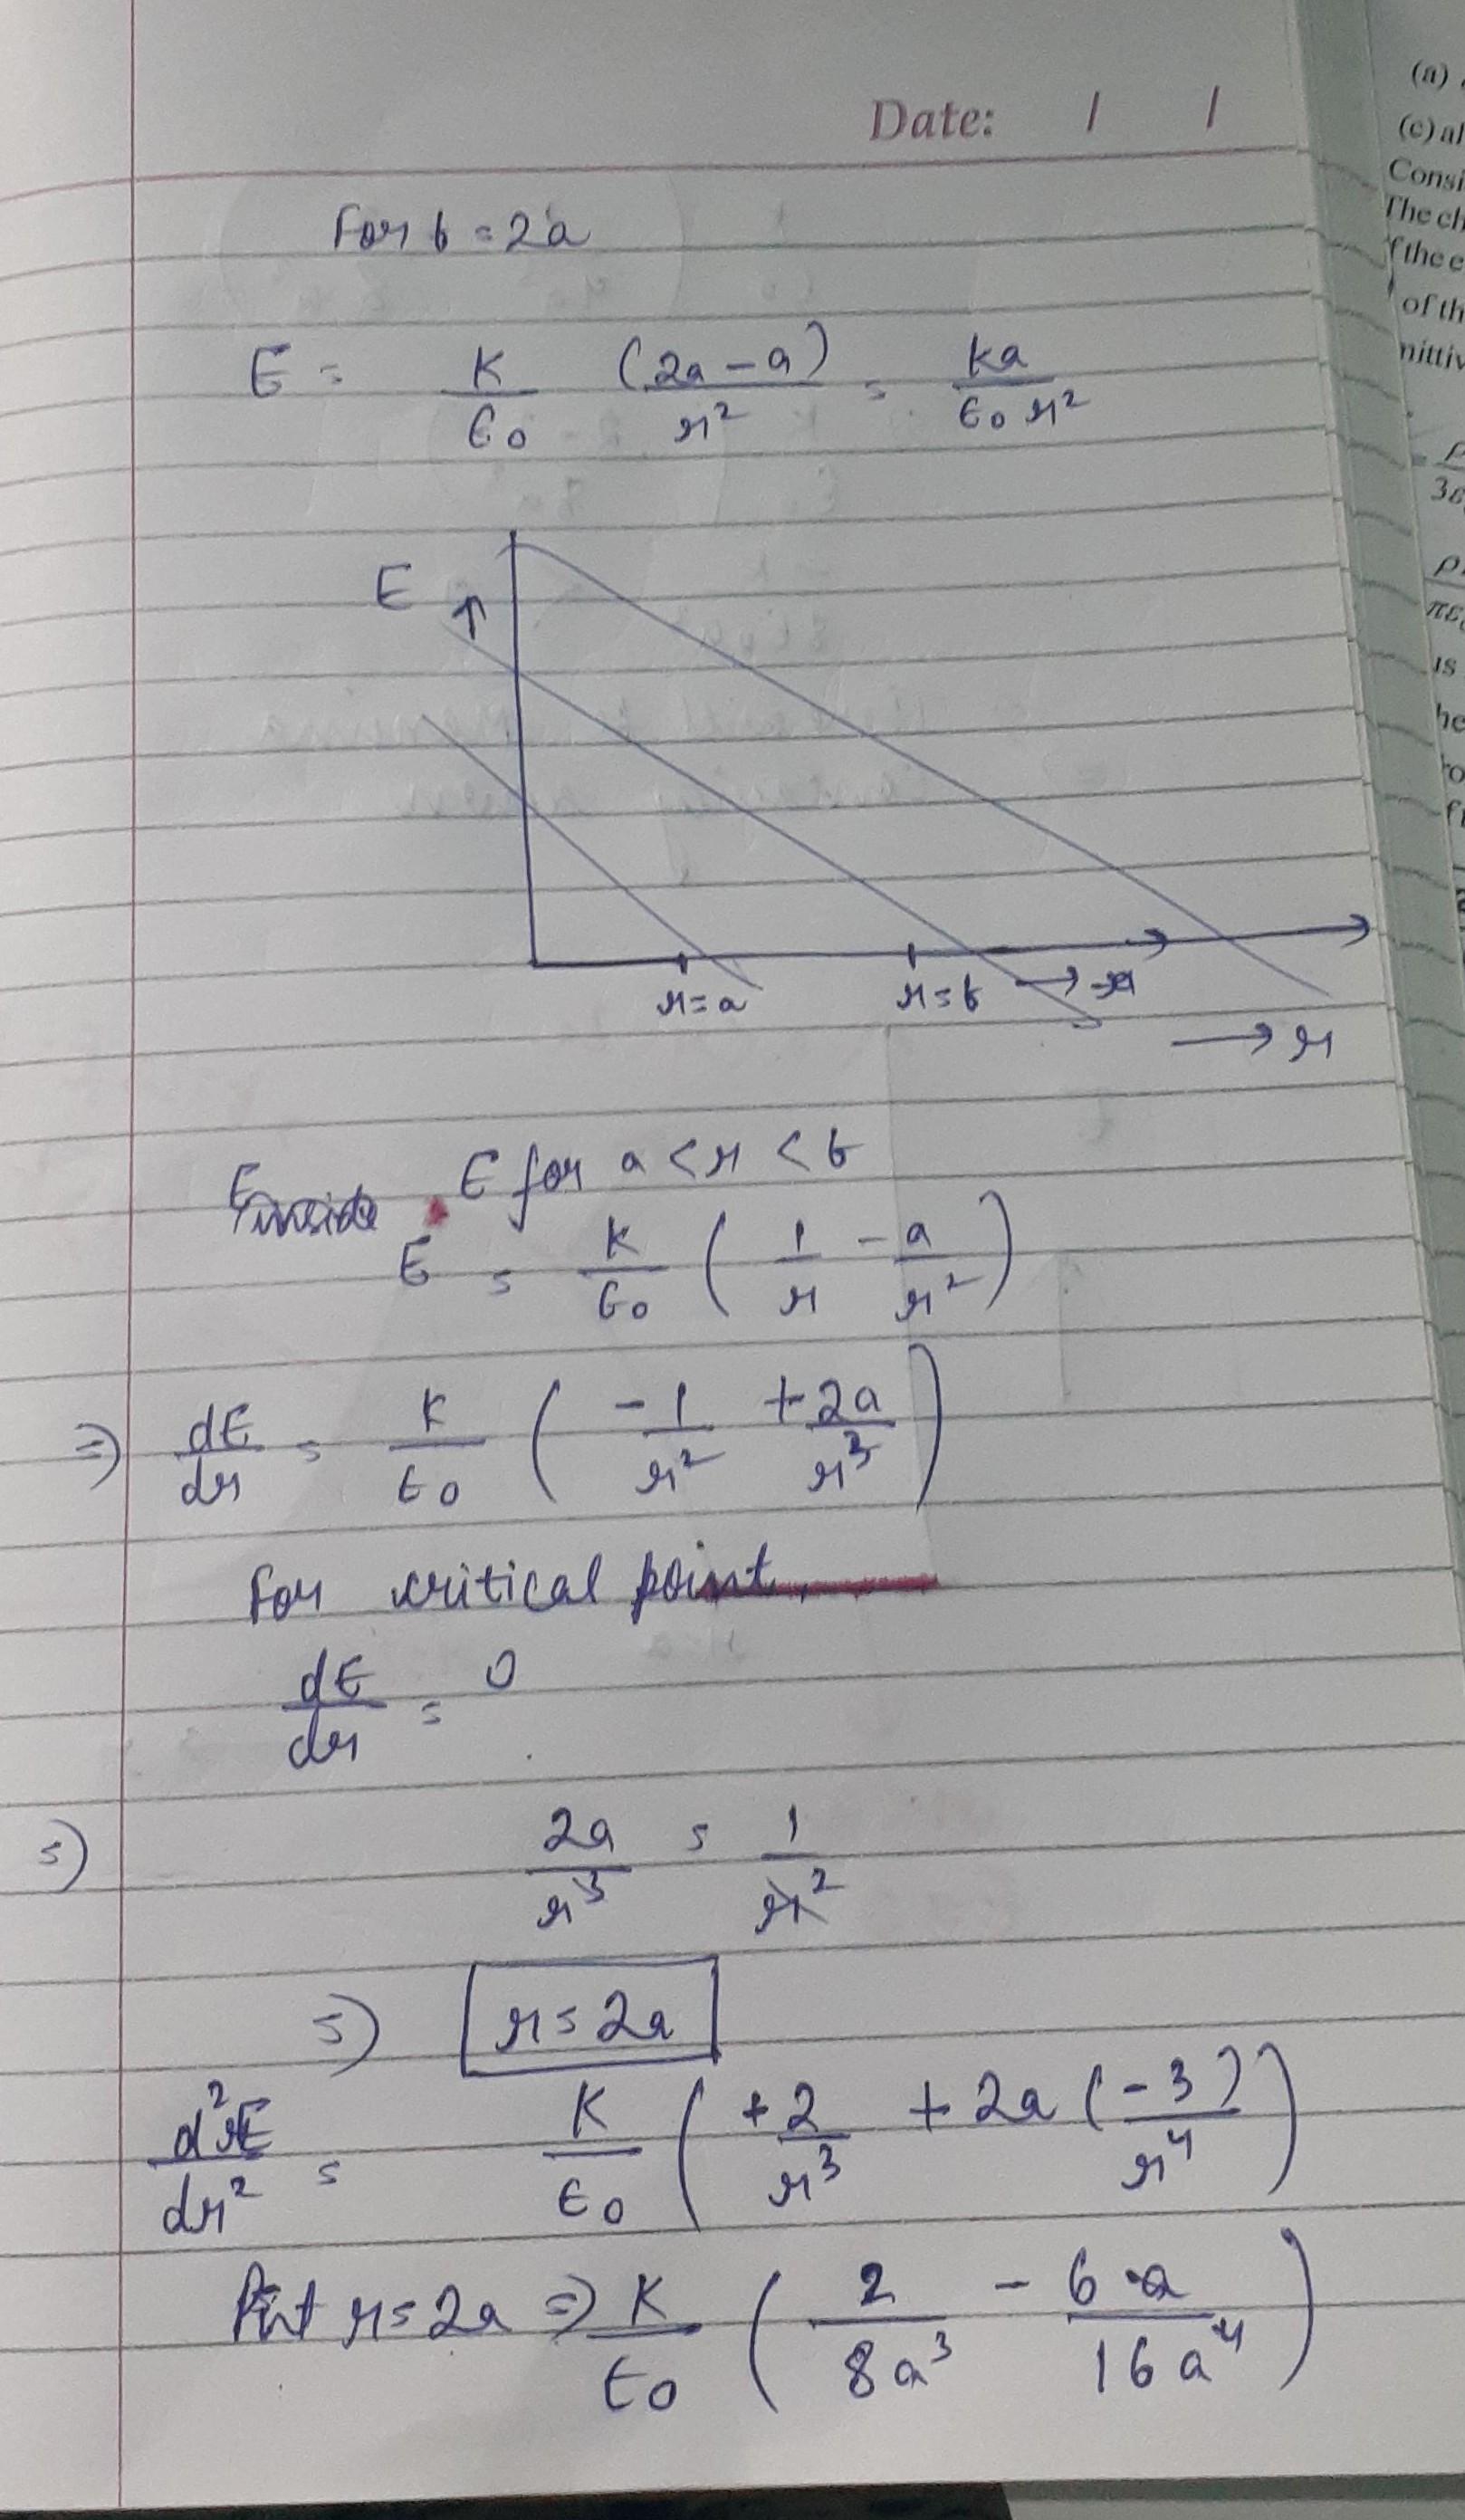 Date: / /
For b = 2a
E = K/ε0 (2a - a)/r² = Ka/ε0 r²
E ↑
r = a r = b → r
→ r
Einside E for a < r < b
E = K/ε0 (1/r - a/r²)
⇒ dE/dr = K/ε0 (-1/r² + 2a/r³)
For critical point,
dE/dr = 0
⇒ 2a/r³ = 1/r²
⇒ r = 2a
d²E/dr² = K/ε0 (+2/r³ + 2a(-3)/r⁴)
Put r = 2a ⇒ K/ε0 (2/8a³ - 6a/16a⁴)
(a)
(c) al
Consi
The ch
f the e
of th
mittiv
ρ
3ε
ρ
πε
is
he